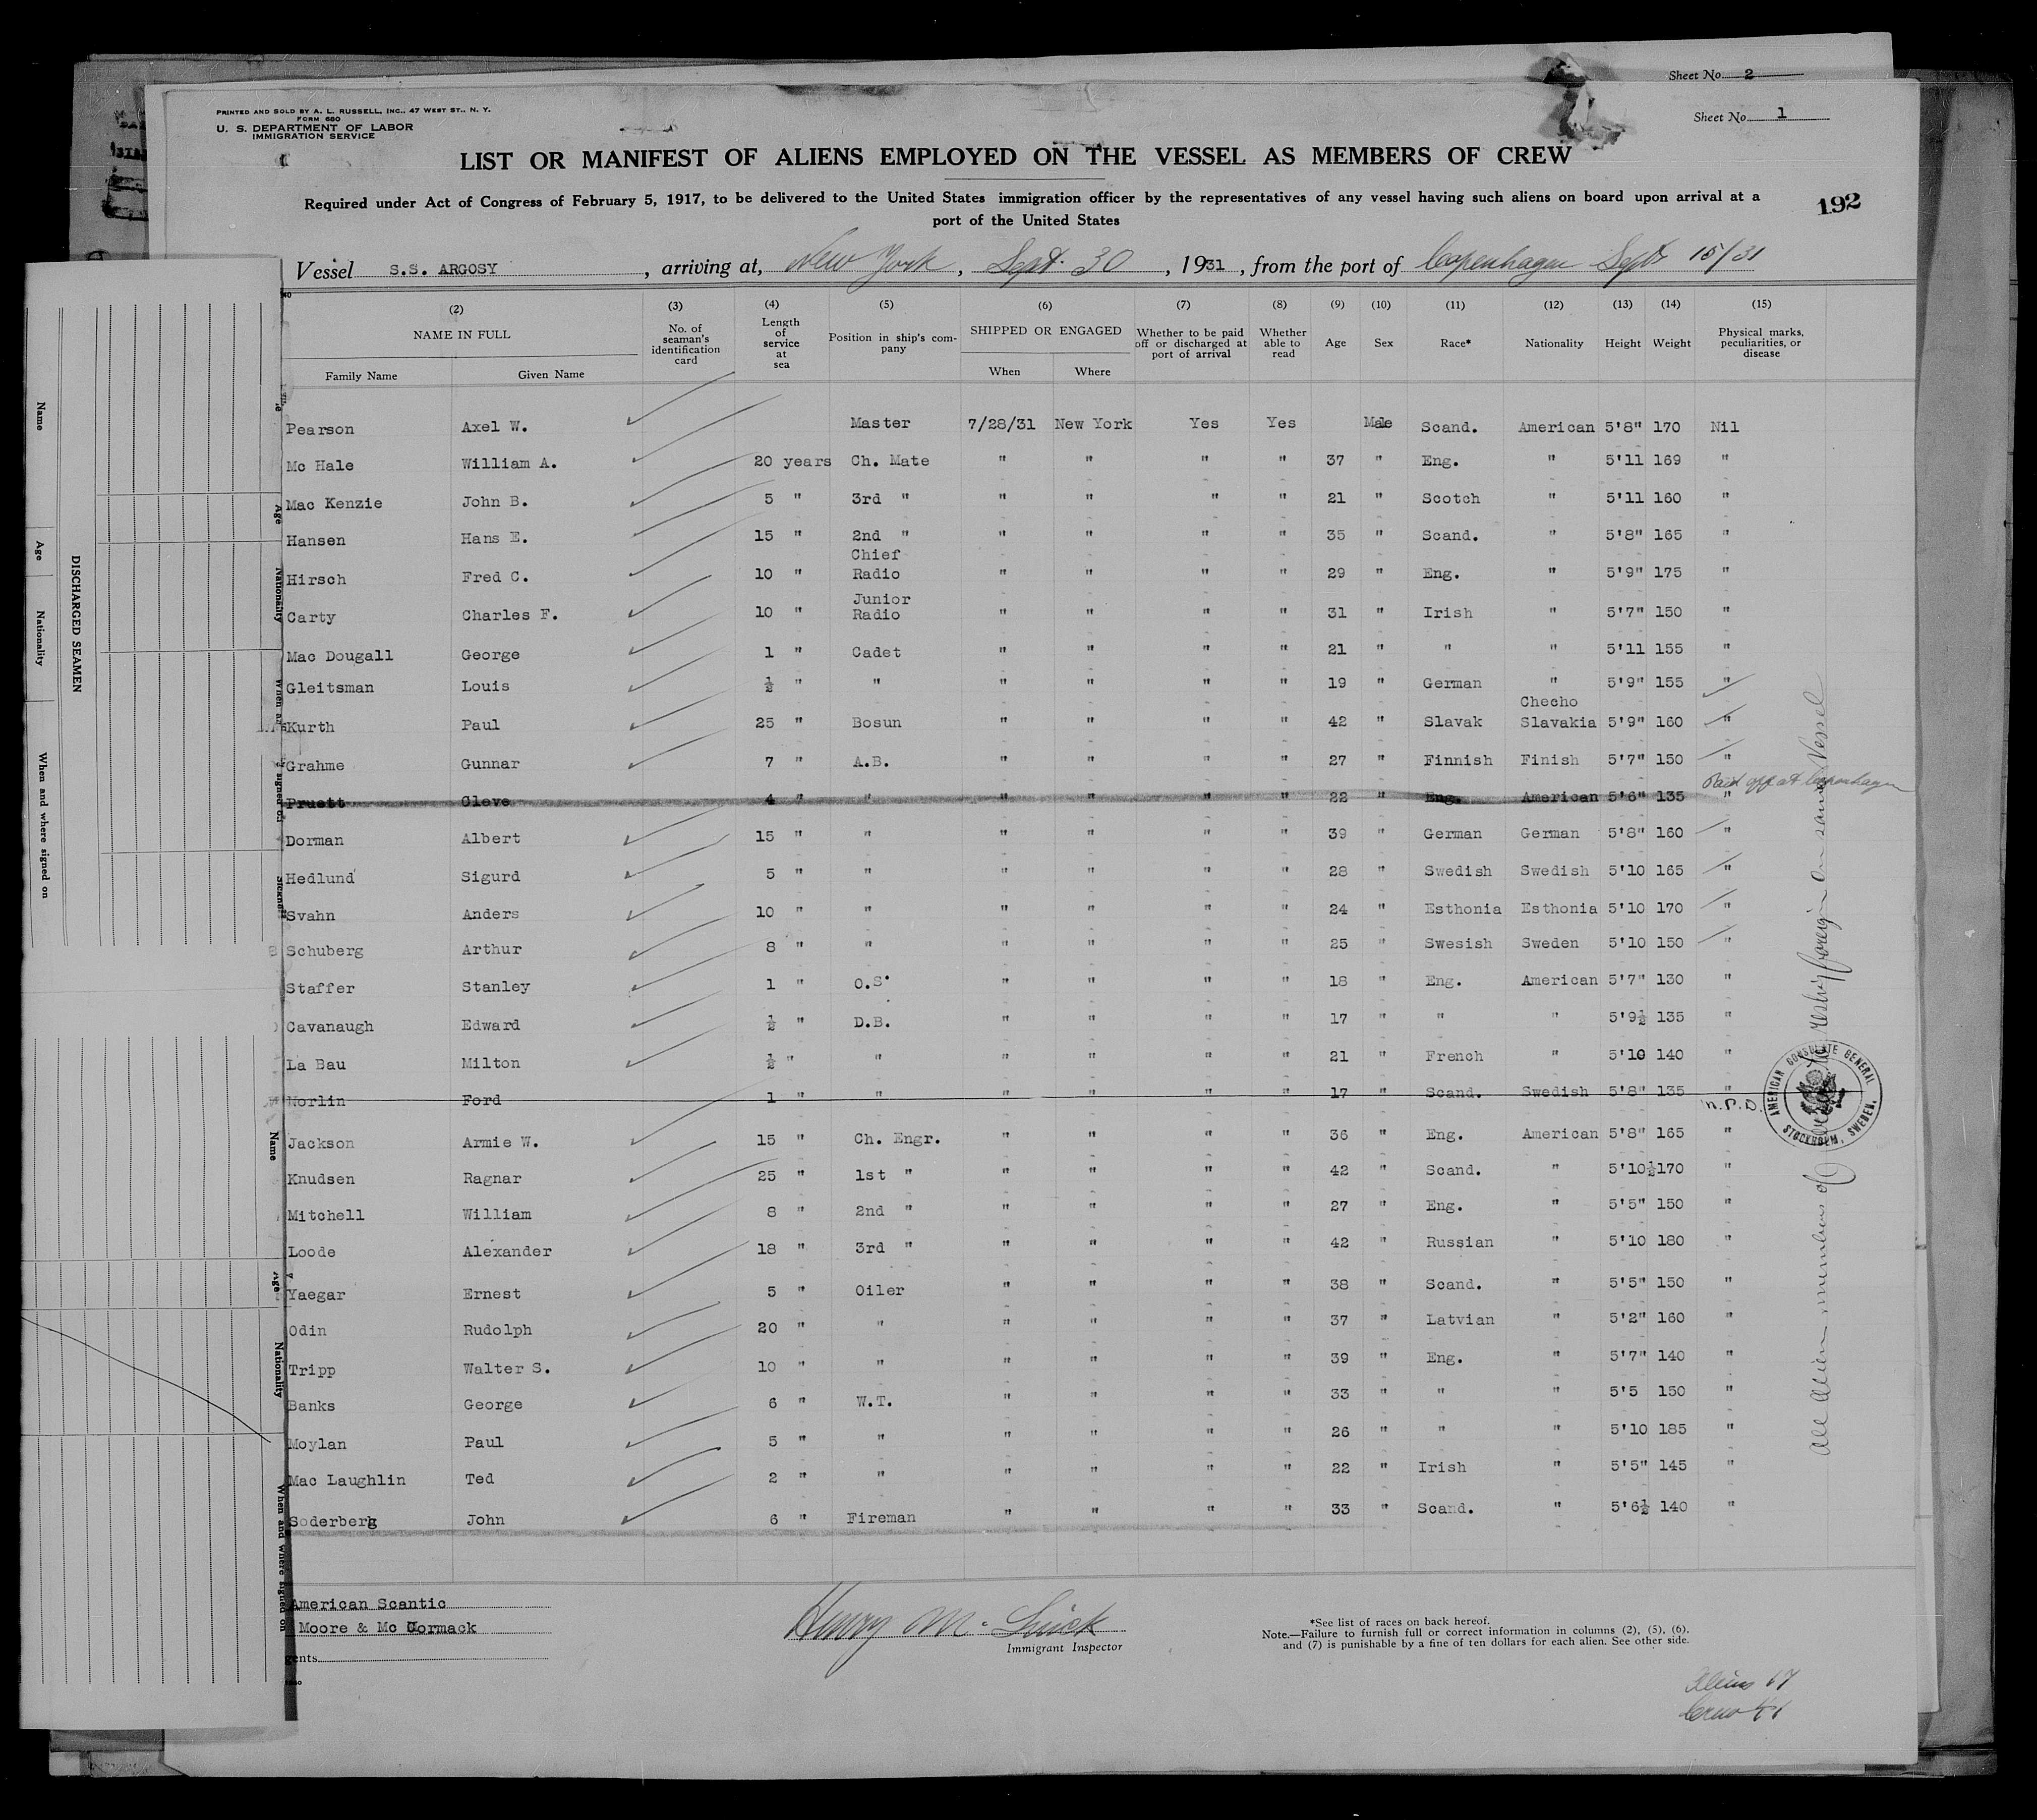 Sheet No. 2
Sheet No. 1
PRINTED AND SOLD BY A. L. RUSSELL, INC., 47 WEST ST., N. Y.
FORM 680
U. S. DEPARTMENT OF LABOR
IMMIGRATION SERVICE
LIST OR MANIFEST OF ALIENS EMPLOYED ON THE VESSEL AS MEMBERS OF CREW
Required under Act of Congress of February 5, 1917, to be delivered to the United States immigration officer by the representatives of any vessel having such aliens on board upon arrival at a
port of the United States
192
Vessel S.S. ARGOSY, arriving at, New York, Sept. 30, 1931, from the port of Copenhagen Sept 15/31
(2) (3) (4) (5) (6) (7) (8) (9) (10) (11) (12) (13) (14) (15)
NAME IN FULL No. of seaman's identification card Length of service at sea Position in ship's company SHIPPED OR ENGAGED Whether to be paid off or discharged at port of arrival Whether able to read Age Sex Race* Nationality Height Weight Physical marks, peculiarities, or disease
Family Name Given Name When Where
Pearson Axel W. Master 7/28/31 New York Yes Yes Male Scand. American 5'8" 170 Nil
Mc Hale William A. 20 years Ch. Mate " " " " 37 " Eng. " 5'11 169 "
Mac Kenzie John B. 5 " 3rd " " " " " 21 " Scotch " 5'11 160 "
Hansen Hans E. 15 " 2nd " " " " " 35 " Scand. " 5'8" 165 "
Hirsch Fred C. 10 " Chief Radio " " " " 29 " Eng. " 5'9" 175 "
Carty Charles F. 10 " Junior Radio " " " " 31 " Irish " 5'7" 150 "
Mac Dougall George 1 " Cadet " " " " 21 " " " 5'11 155 "
Gleitsman Louis ½ " " " " " " 19 " German " 5'9" 155 "
Kurth Paul 25 " Bosun " " " " 42 " Slavak Checho Slavakia 5'9" 160 "
Grahme Gunnar 7 " A.B. " " " " 27 " Finnish Finish 5'7" 150 "
Pruett Cleve 4 " " " " " " 22 " Eng. American 5'6" 135 " Paid off at Copenhagen
Dorman Albert 15 " " " " " " 39 " German German 5'8" 160 "
Hedlund Sigurd 5 " " " " " " 28 " Swedish Swedish 5'10 165 "
Svahn Anders 10 " " " " " " 24 " Esthonia Esthonia 5'10 170 "
Schuberg Arthur 8 " " " " " " 25 " Swesish Sweden 5'10 150 "
Staffer Stanley 1 " O.S. " " " " 18 " Eng. American 5'7" 130 "
Cavanaugh Edward ½ " D.B. " " " " 17 " " " 5'9½ 135 "
La Bau Milton ½ " " " " " " 21 " French " 5'10 140 "
Morlin Ford 1 " " " " " " 17 " Scand. Swedish 5'8" 135 " N.P.D.
Jackson Armie W. 15 " Ch. Engr. " " " " 36 " Eng. American 5'8" 165 "
Knudsen Ragnar 25 " 1st " " " " " 42 " Scand. " 5'10½ 170 "
Mitchell William 8 " 2nd " " " " " 27 " Eng. " 5'5" 150 "
Loode Alexander 18 " 3rd " " " " " 42 " Russian " 5'10 180 "
Yaegar Ernest 5 " Oiler " " " " 38 " Scand. " 5'5" 150 "
Odin Rudolph 20 " " " " " " 37 " Latvian " 5'2" 160 "
Tripp Walter S. 10 " " " " " " 39 " Eng. " 5'7" 140 "
Banks George 6 " W.T. " " " " 33 " " " 5'5 150 "
Moylan Paul 5 " " " " " " 26 " " " 5'10 185 "
Mac Laughlin Ted 2 " " " " " " 22 " Irish " 5'5" 145 "
Soderberg John 6 " Fireman " " " " 33 " Scand. " 5'6½ 140 "
All Alien members of crew to reship foreign on same Vessel
AMERICAN CONSULATE GENERAL
STOCKHOLM, SWEDEN.
American Scantic
Moore & Mc Cormack
gents
Henry M.
Immigrant Inspector
*See list of races on back hereof.
Note.—Failure to furnish full or correct information in columns (2), (5), (6),
and (7) is punishable by a fine of ten dollars for each alien. See other side.
Aliens 17
Crew
DISCHARGED SEAMEN
Name Age Nationality When and where signed on
Name Age Nationality When and where signed on